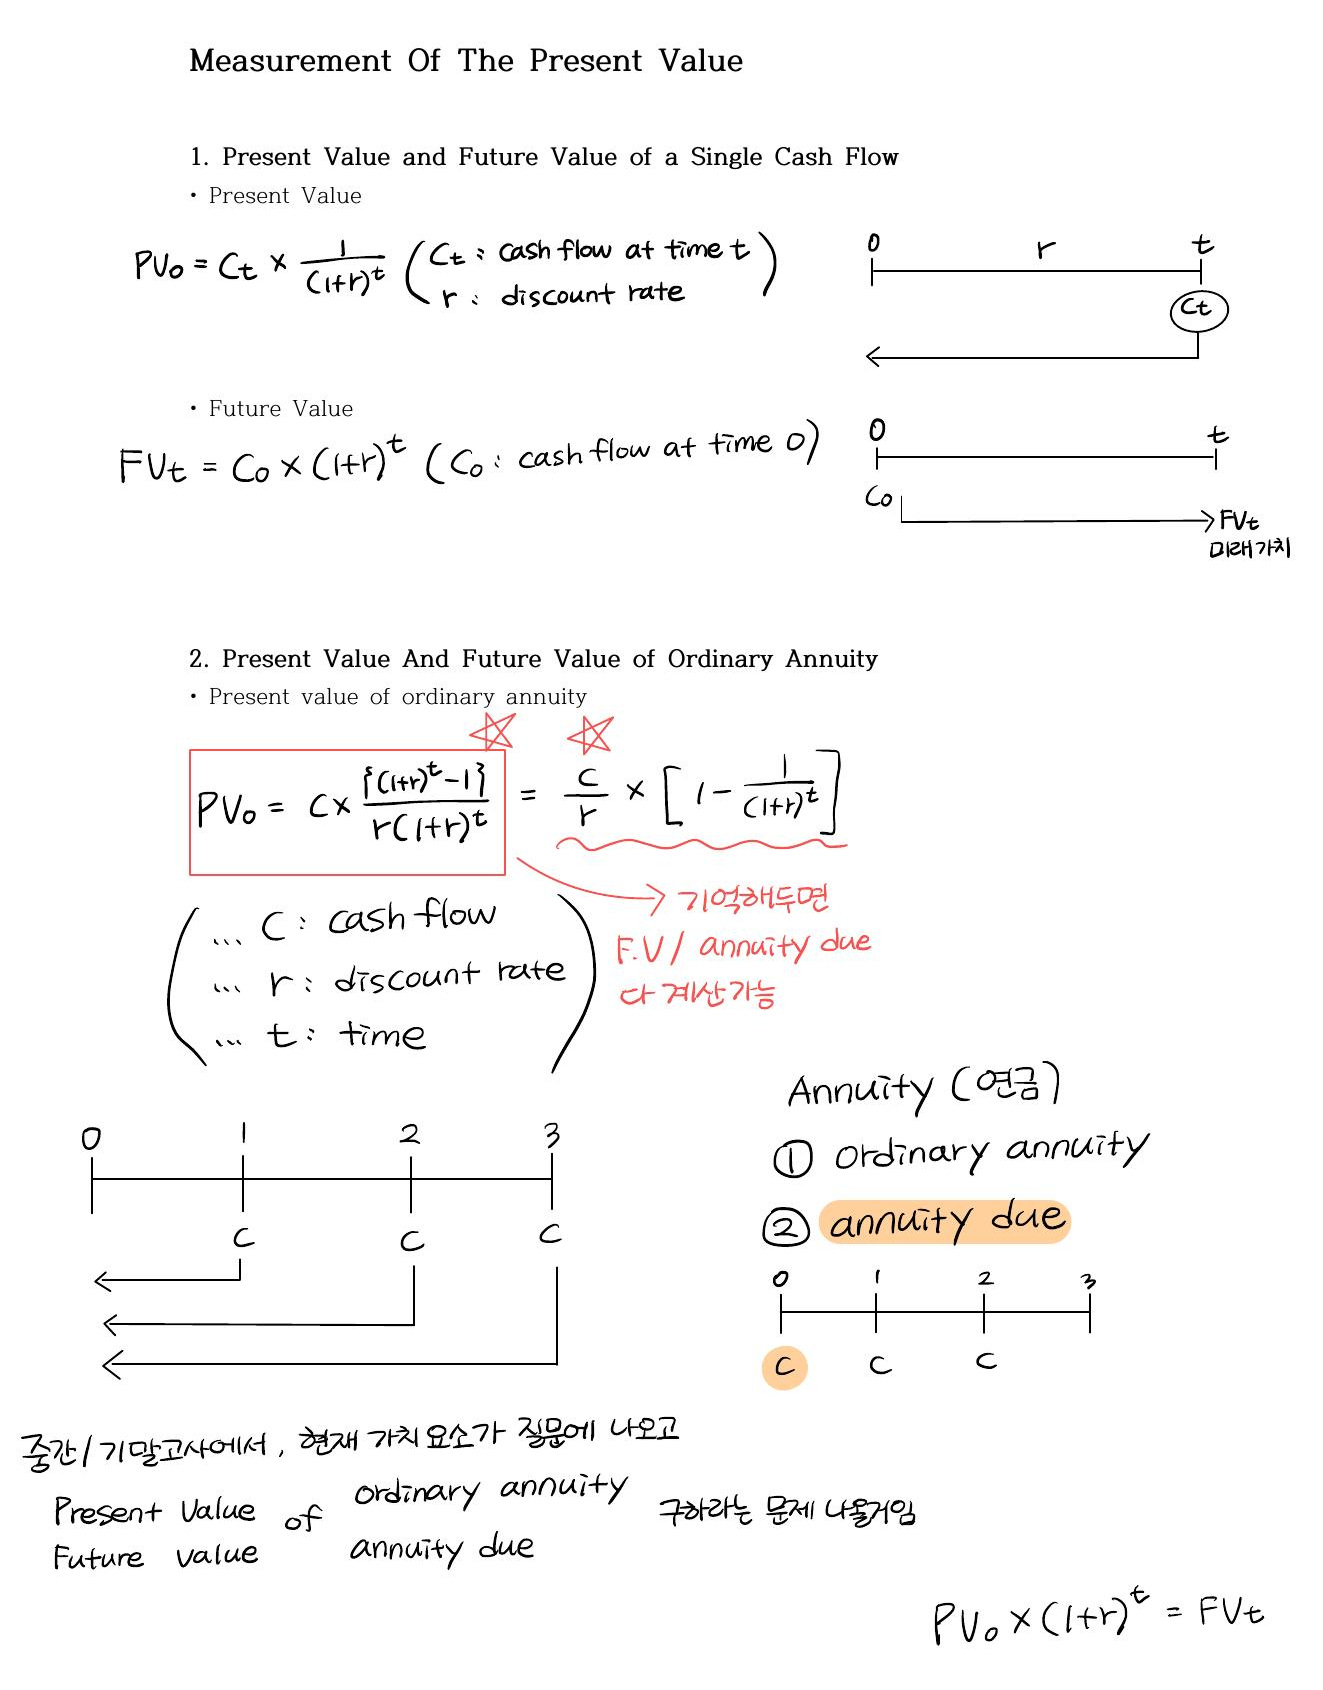 Measurement Of The Present Value
1. Present Value and Future Value of a Single Cash Flow
• Present Value
PV₀ = Ct × 1/(1+r)^t ( Ct : cash flow at time t
r : discount rate )
0 r t
Ct
• Future Value
FVt = C₀ × (1+r)^t ( C₀ : cash flow at time 0)
0 t
C₀
FVt
미래가치
2. Present Value And Future Value of Ordinary Annuity
• Present value of ordinary annuity
PV₀ = C× {(1+r)^t-1}/r(1+r)^t = C/r × [1 - 1/(1+r)^t]
기억해두면
F.V / annuity due
다 계산가능
... C : cash flow
... r : discount rate
... t : time
0 1 2 3
C C C
Annuity (연금)
① ordinary annuity
② annuity due
0 1 2 3
C C C
중간/기말고사에서, 현재 가치 요소가 질문에 나오고
Present Value of ordinary annuity 구하라는 문제 나올거임
Future value annuity due
PV₀ × (1+r)^t = FVt